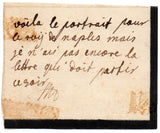 voila le portrait pour
le roy de naples mais
je n'ai pas encore la
lettre qui doit partir
ce soir